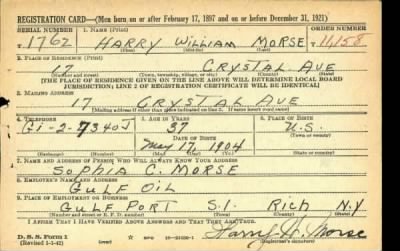 REGISTRATION CARD—(Men born on or after February 17, 1897 and on or before December 31, 1921)
SERIAL NUMBER 1. NAME (Print) ORDER NUMBER
1762 HARRY WILLIAM MORSE 11158
(First) (Middle) (Last)
2. PLACE OF RESIDENCE (Print)
17 CRYSTAL AVE
(Number and street) (Town, township, village, or city) (County) (State)
[THE PLACE OF RESIDENCE GIVEN ON THE LINE ABOVE WILL DETERMINE LOCAL BOARD
JURISDICTION; LINE 2 OF REGISTRATION CERTIFICATE WILL BE IDENTICAL]
3. MAILING ADDRESS
17 CRYSTAL AVE
[Mailing address if other than place indicated on line 2. If same insert word same]
4. TELEPHONE 5. AGE IN YEARS 6. PLACE OF BIRTH
GI-2-7340J 37 U.S.
DATE OF BIRTH
May 17, 1904
(Exchange) (Number) (Mo.) (Day) (Yr.) (State or country)
7. NAME AND ADDRESS OF PERSON WHO WILL ALWAYS KNOW YOUR ADDRESS
SOPHIA C. MORSE
8. EMPLOYER'S NAME AND ADDRESS
GULF OIL
9. PLACE OF EMPLOYMENT OR BUSINESS
GULF PORT S.I. RICH N.Y.
(Number and street or R. F. D. number) (Town) (County) (State)
I AFFIRM THAT I HAVE VERIFIED ABOVE ANSWERS AND THAT THEY ARE TRUE.
D. S. S. Form 1
(Revised 1-1-42) (over) Harry W. Morse
(Registrant's signature)